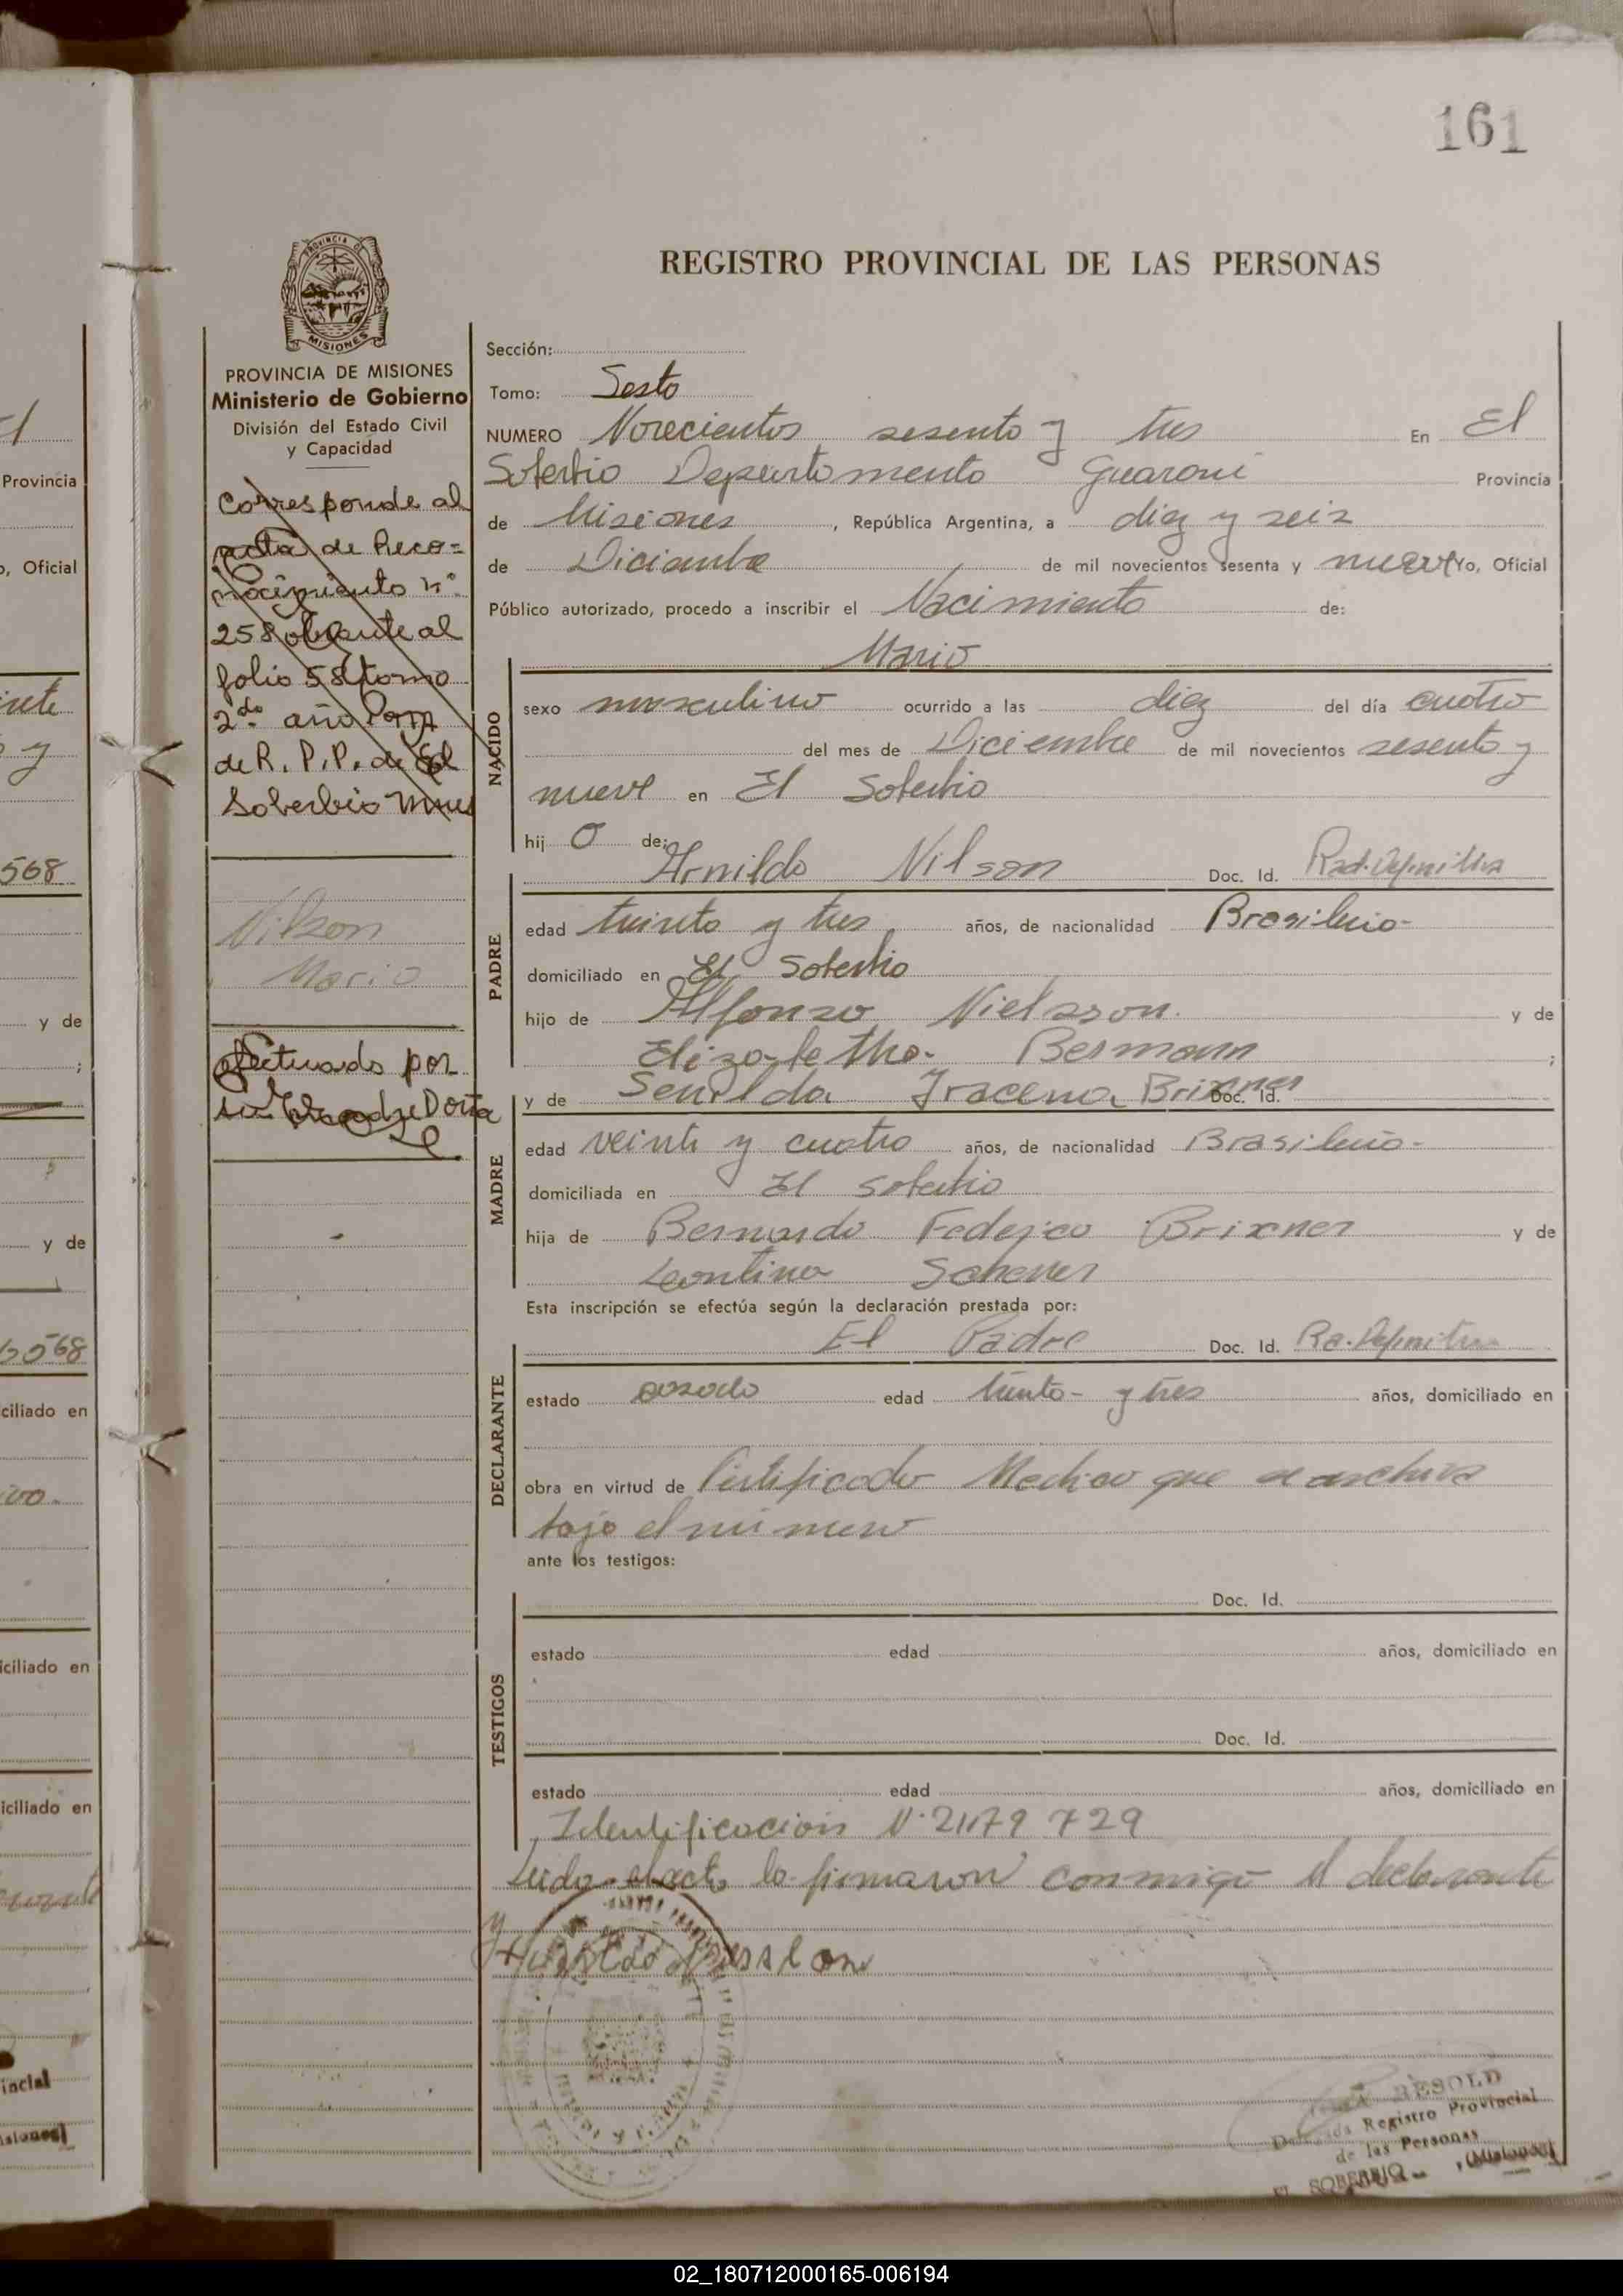 161
PROVINCIA DE
MISIONES
REGISTRO PROVINCIAL DE LAS PERSONAS
PROVINCIA DE MISIONES
Ministerio de Gobierno
División del Estado Civil
y Capacidad
Corresponde al
acta de Reco-
nocimiento n°
258 obrante al
folio 58 tomo
2do año
de R. P. P. de El
Soberbio Mnes
Nilson
Mario
efectuado por
Sección:
Tomo: Sesto
NUMERO Novecientos sesenta y tres En El
Soberbio Departamento Guarani Provincia
de Misiones , República Argentina, a diez y seis
de Diciembre de mil novecientos sesenta y nueve Yo, Oficial
Público autorizado, procedo a inscribir el Nacimiento de:
Mario
NACIDO
sexo masculino ocurrido a las diez del día cuatro
del mes de Diciembre de mil novecientos sesenta y
nueve en El Soberbio
hij o de:
Arnildo Nilson Doc. Id. Rad. Definitiva
PADRE
edad treinta y tres años, de nacionalidad Brasileño-
domiciliado en El Soberbio
hijo de Alfonso Nielsson. y de
Elizabetha. Bermann ;
y de Senilda Iracema Brixner Doc. Id.
MADRE
edad veinte y cuatro años, de nacionalidad Brasileña-
domiciliada en El Soberbio
hija de Bernardo Federico Brixner y de
Leontina Scherer
Esta inscripción se efectúa según la declaración prestada por:
El Padre Doc. Id. Ra. Definitiva
DECLARANTE
estado casado edad treinta- y tres años, domiciliado en
obra en virtud de Certificado Medico que se archiva
bajo el número
ante los testigos:
Doc. Id.
TESTIGOS
estado edad años, domiciliado en
Doc. Id.
estado edad años, domiciliado en
Identificación N° 2179 729
Leida el acta la firmaron conmigo el declarante
y
RESOLD
Registro Provincial
de las Personas
EL SOBERBIO - (Misiones)
El
Provincia
o, Oficial
y
568
y de
;
y de
568
ciliado en
iciliado en
iciliado en
incial
isiones)
02_180712000165-006194